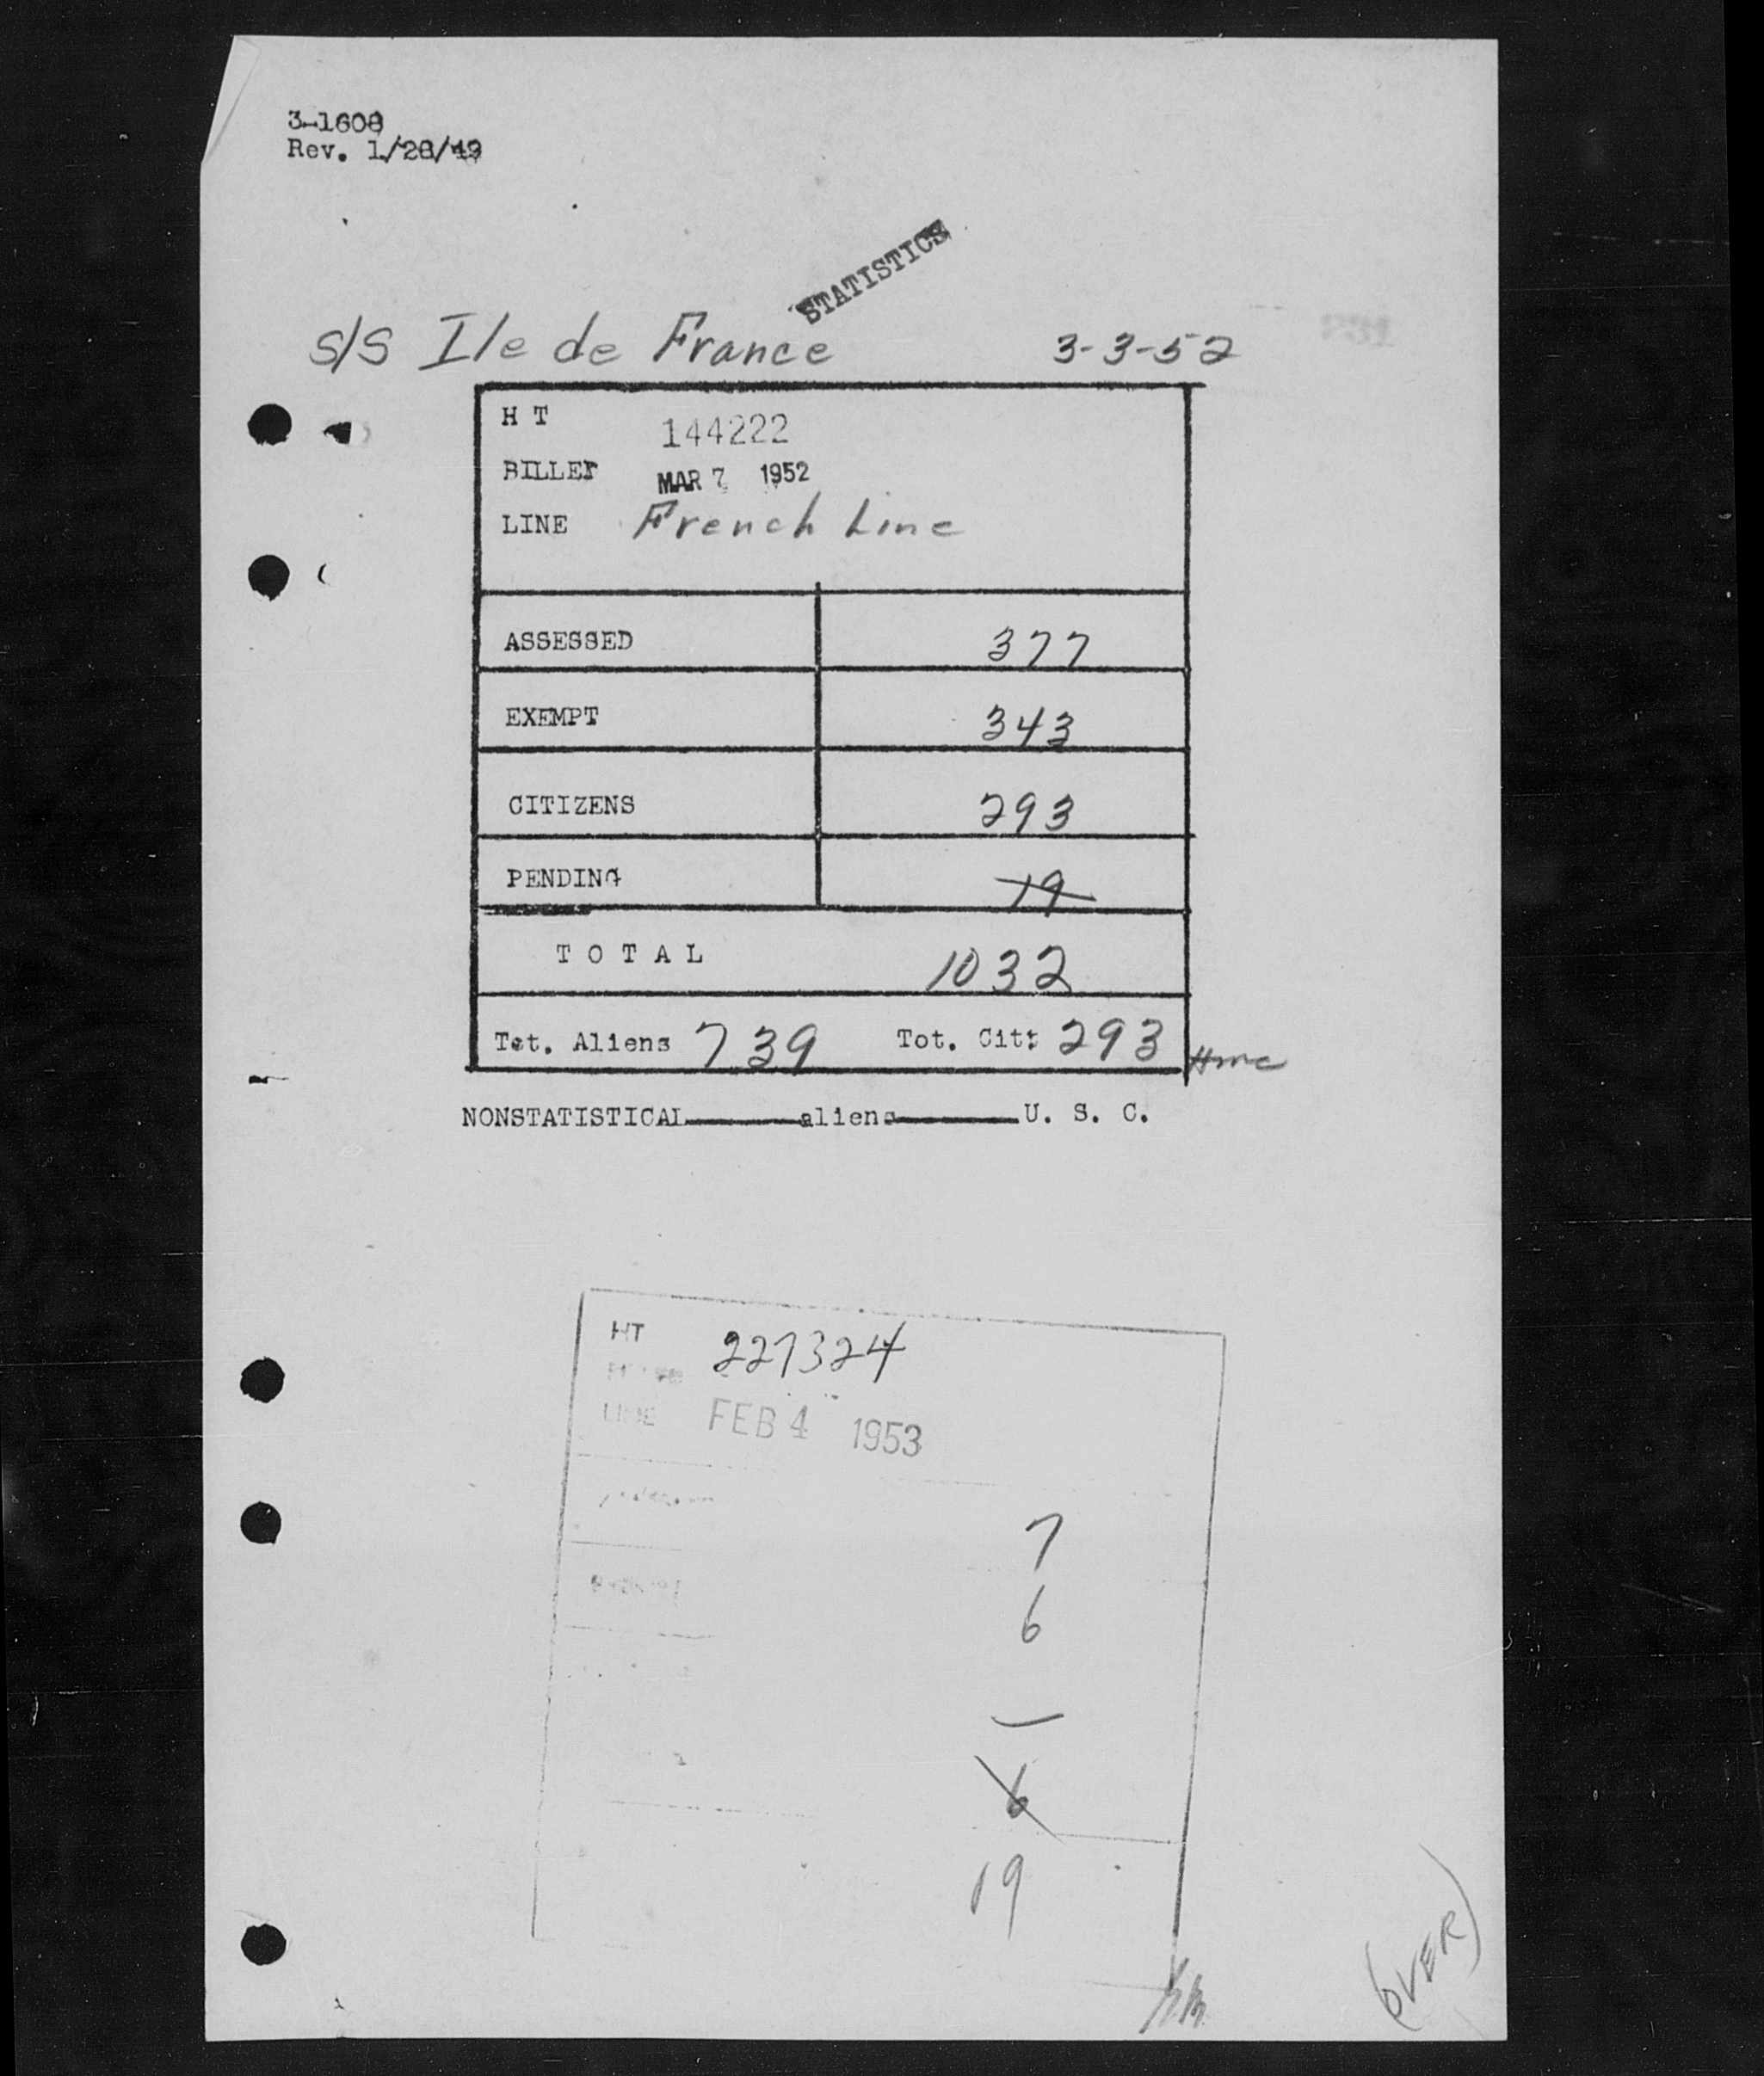 3-1608
Rev. 1/28/49
STATISTICS
S/S Ile de France 3-3-52
H T 144222
BILLET MAR 7 1952
LINE French Line
ASSESSED 377
EXEMPT 343
CITIZENS 293
PENDING 19
T O T A L 1032
Tot. Aliens 739 Tot. Cit: 293
NONSTATISTICAL aliens U. S. C.
HT 227324
LINE FEB 4 1953
7
6
6
19
(OVER)